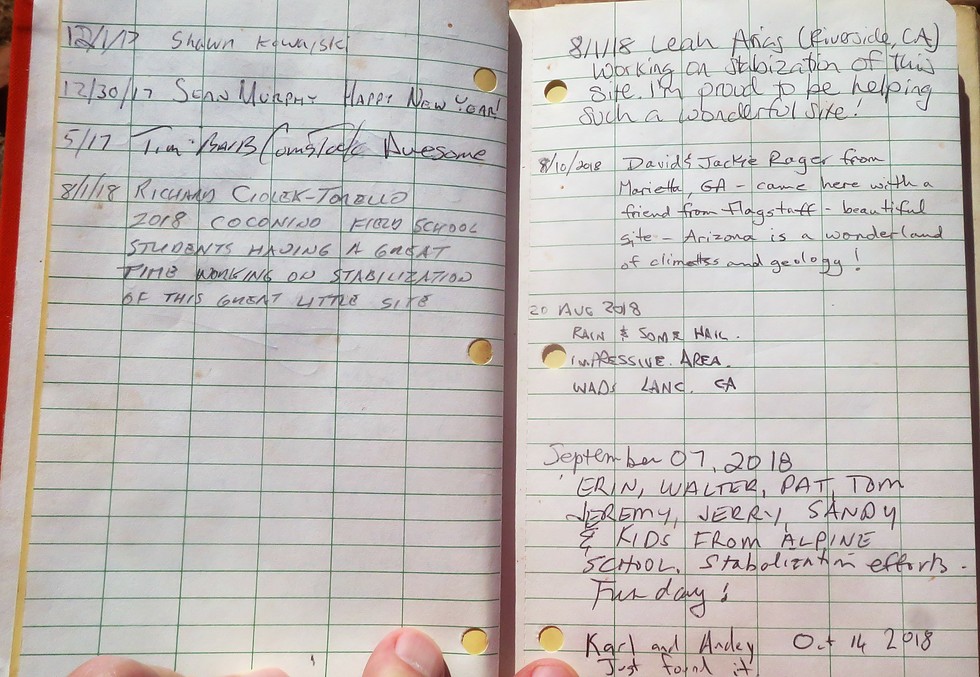 12/1/17 Shawn Kowalski
12/30/17 SEAN MURPHY HAPPY NEW YEAR!
5/17 Tim BARB Comstock Awesome
8/1/18 RICHARD CIOLEK-TORELLO
2018 COCONINO FIELD SCHOOL
STUDENTS HAVING A GREAT
TIME WORKING ON STABILIZATION
OF THIS GREAT LITTLE SITE
8/1/18 Leah Arias (Riverside, CA)
Working on stabization of this
site. I'm proud to be helping
such a wonderful site!
8/10/2018 David & Jackie Rager from
Marietta, GA - came here with a
friend from Flagstaff - beautiful
site - Arizona is a wonderland
of climates and geology!
20 AUG 2018
RAIN & SOME HAIL.
IMPRESSIVE AREA.
WADS LANC. CA
September 07, 2018
ERIN, WALTER, PAT, TOM
JEREMY, JERRY, SANDY
& KIDS FROM ALPINE
SCHOOL. Stabolization efforts.
Fun day!
Karl and Oct 14 2018
Just found it